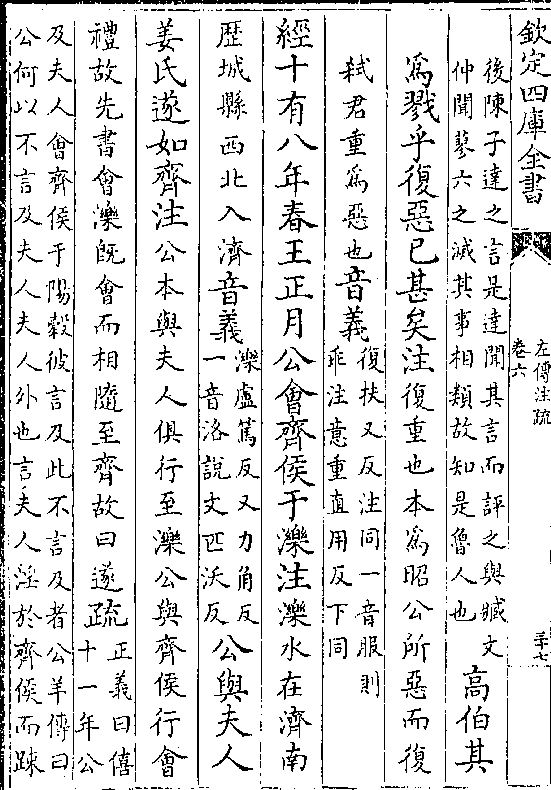 欽定四庫全書
左傳注疏
卷六
三十七
後陳子達之言是達聞其言而評之與臧文
仲聞蓼六之滅其事相類故知是魯人也
高伯其
爲戮乎復惡已甚矣注復重也本爲昭公所惡而復
弑君重爲惡也音義
復扶又反注同一音服則
乖注意重直用反下同
經十有八年春王正月公會齊侯于濼注濼水在濟南
歴城縣西北入濟音義
濼盧篤反又力角反
一音洛說文匹沃反
公與夫人
姜氏遂如齊注公本與夫人俱行至濼公與齊侯行會
禮故先書會濼旣會而相隨至齊故曰遂疏
正義曰僖
十一年公
及夫人會齊侯于陽穀彼言及此不言及者公羊傳曰
公何以不言及夫人夫人外也言夫人淫於齊侯而踈